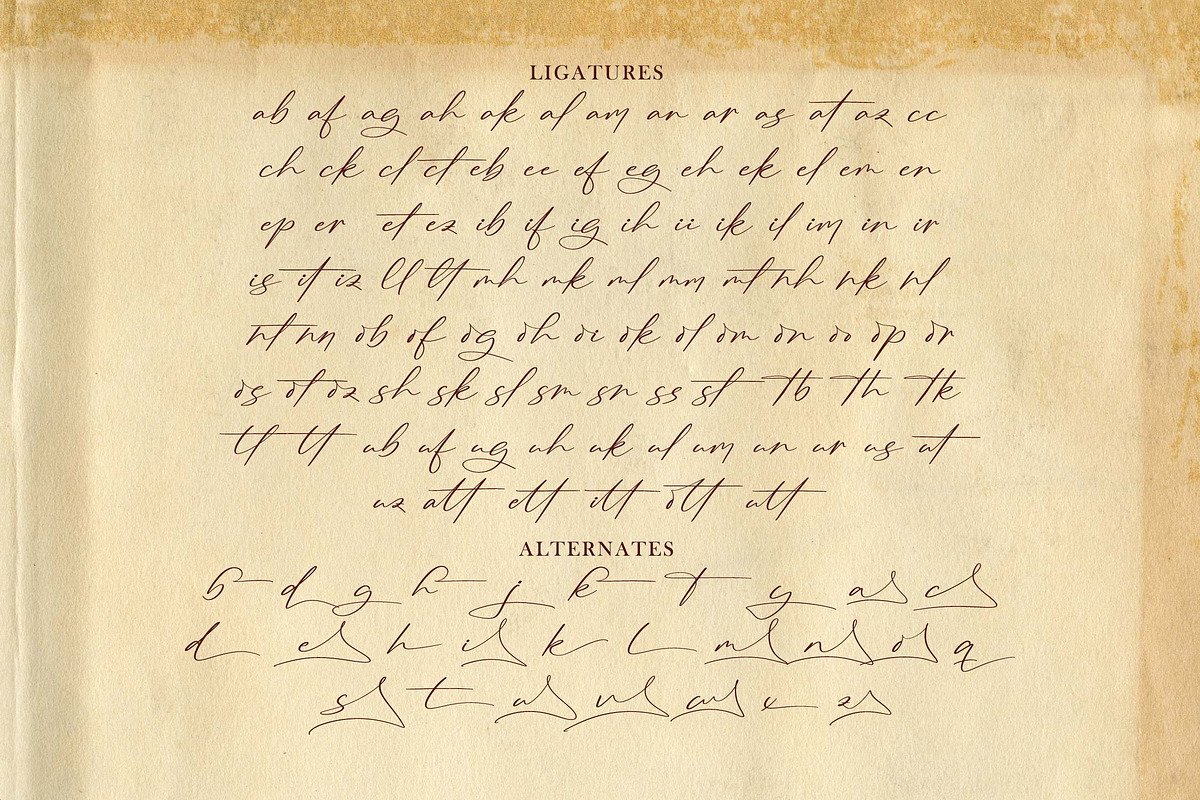 LIGATURES
ab af ag ah ak al am an ar as at az cc
ch ck cl ct eb ee ef eg eh ek el em en
ep er et ez ib if ig ih ii ik il im in ir
is it iz ll lt mh mk ml mm mt nh nk nl
nt nn ob of og oh oi ok ol om on oo op or
os ot oz sh sk sl sm sn ss st tb th tk
tl tt ub uf ug uh uk ul um un ur us ut
uz att ett itt ott utt
ALTERNATES
b d g h j k t y a c
d e h i k l m n o q
s t u v w x z